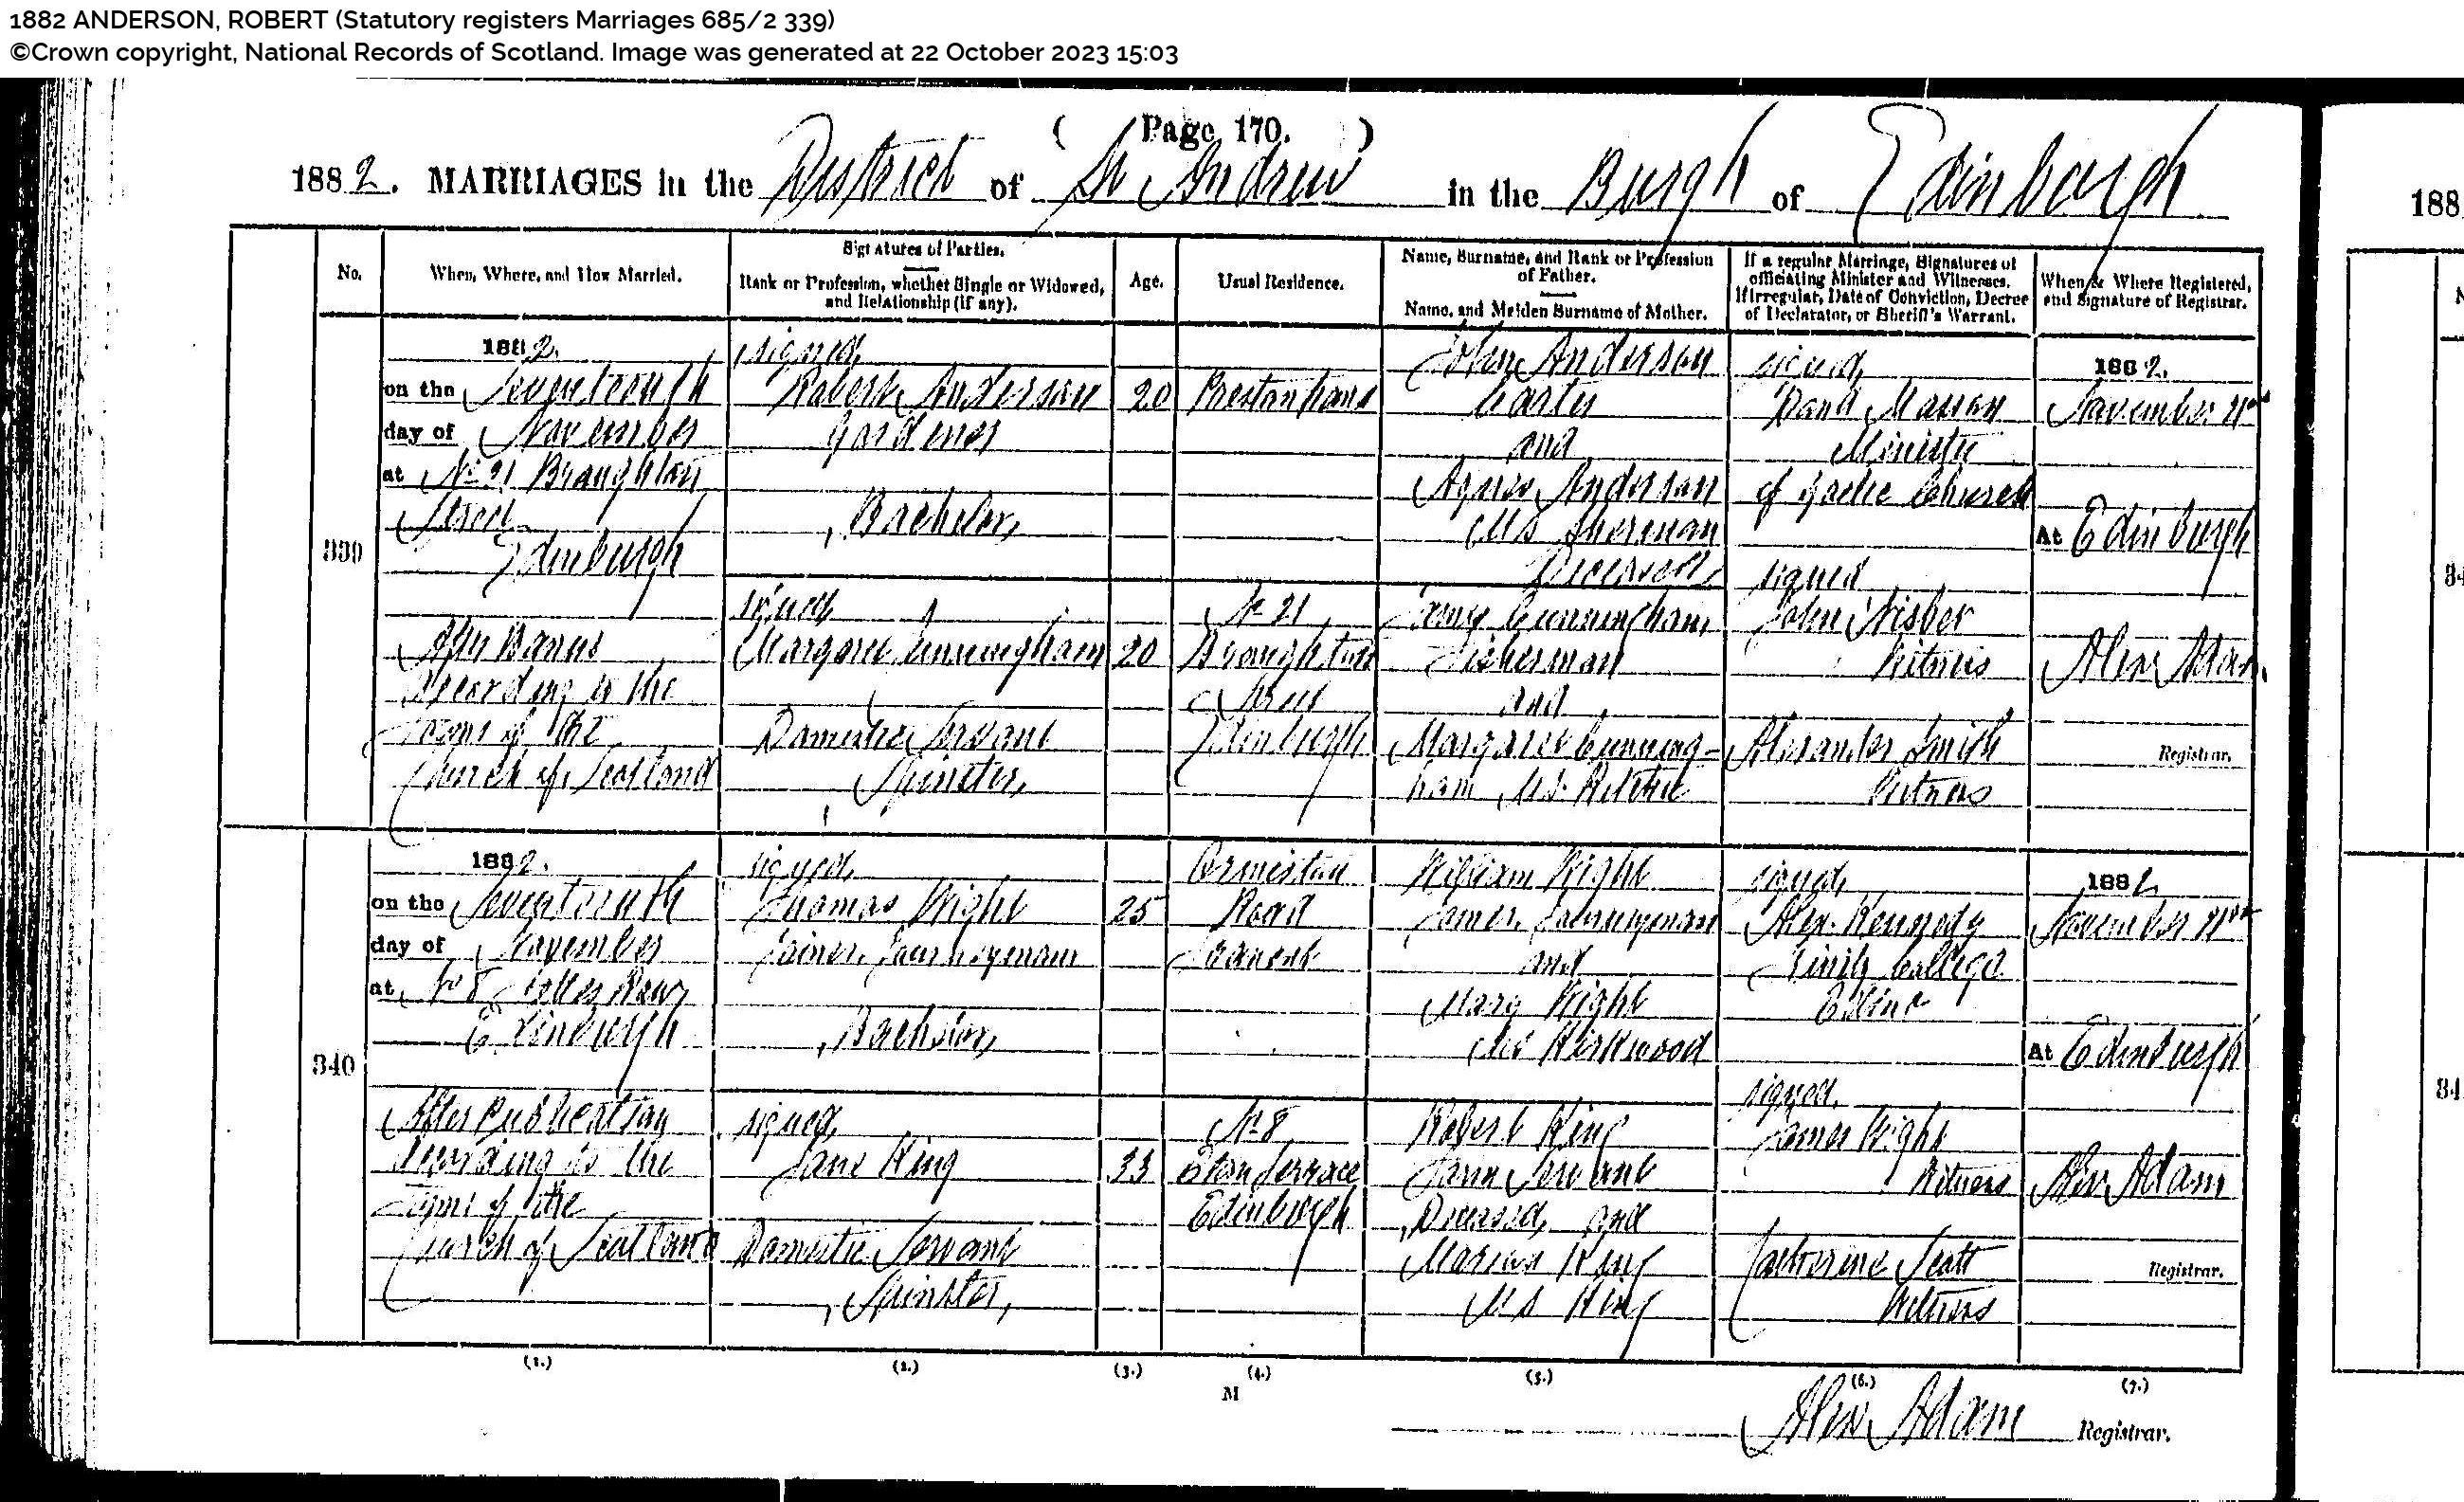 1882 ANDERSON, ROBERT (Statutory registers Marriages 685/2 339)
©Crown copyright, National Records of Scotland. Image was generated at 22 October 2023 15:03
( Page 170. )
1882. MARRIAGES in the District of St Andrew in the Burgh of Edinburgh
188
No.
When, Where, and How Married.
Signatures of Parties.
Rank or Profession, whether Single or Widowed,
and Relationship (if any).
Age.
Usual Residence.
Name, Surname, and Rank or Profession
of Father.
Name, and Maiden Surname of Mother.
If a regular Marriage, Signatures of
officiating Minister and Witnesses.
If Irregular, Date of Conviction, Decree
of Declarator, or Sheriff's Warrant.
When & Where Registered,
and Signature of Registrar.
339
1882.
on the Seventeenth
day of November
at No 21 Broughton
Street
Edinburgh
After Banns
According to the
Forms of the
Church of Scotland
signed,
Robert Anderson
Gardener
Bachelor,
signed
Margaret Cunningham
Domestic Servant
Spinster,
20
20
Prestonpans
No 21
Broughton
Street
Edinburgh
John Anderson
Carter
and
Agnes Anderson
MS Sherman
Deceased,
Cunningham,
Fisherman
and
Margaret Cunning-
ham M.S. Ritchie
signed,
David Masson
Minister
of Gaelic Church
signed
John Nisbet
Witness
Alexander Smith
Witness
1882.
November 21st
At Edinburgh
Alex Adam.
Registrar.
340
1882.
on the Seventeenth
day of November
at No 8
Edinburgh
After Publication
According to the
Forms of the
Church of Scotland
signed,
Thomas Wight
Joiner, Journeyman
Bachelor,
signed,
Jane King
Domestic Servant
Spinster,
25
33
Ormiston
Road
Tranent
No 8
Eton Terrace
Edinburgh
William Wight
Joiner, Journeyman
and
Mary Wight
MS Kirkwood
Robert King
Farm Servant
Deceased, and
Marion King
MS King
signed,
Alex. Kennedy
College
Edinr
signed,
James Wight
Witness
Catherine Scott
Witness
1882
November 21st
At Edinburgh
Alex Adam
Registrar.
(1.) (2.) (3.) (4.) (5.) (6.) (7.)
M
Alex. Adam Registrar.